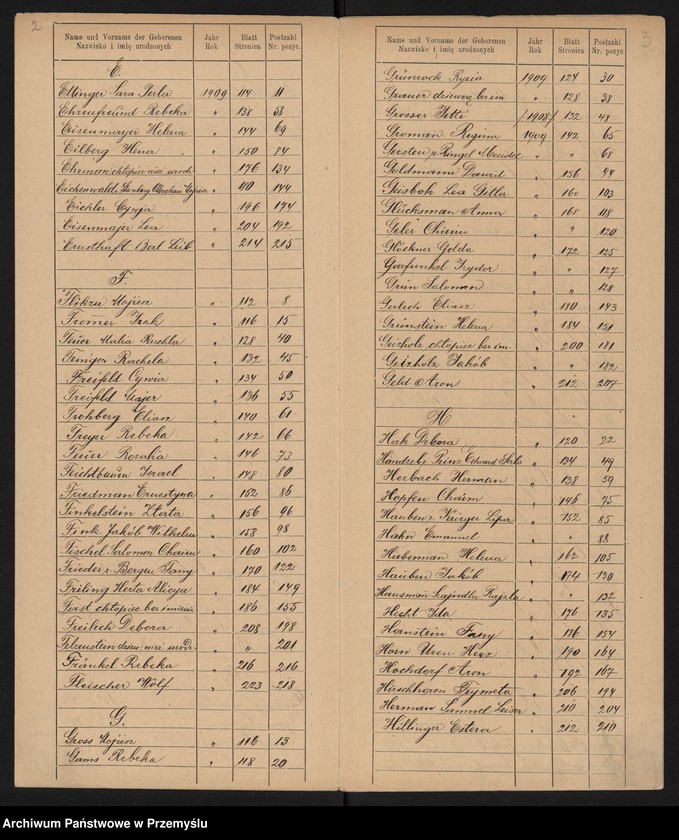 2
Name und Vorname der Geborenen Jahr Blatt Postzahl
Nazwisko i imię urodzonych Rok Stronica Nr. pozyc.
E.
Ettinger Sara Perla 1909 114 11
Ehrenfreund Rebeka " 138 58
Eisenmayer Helena " 144 69
Eilberg Hena " 150 84
Ehrman chłopiec nież. urodz. " 176 134
Abraham Mojżesz " 144
Eichler Cywja " 196 174
Eisenmajer Lea " 204 192
Ernsthaft Berl Leib " 214 215
F.
Mojżesz " 112 8
Tromer Izak " 116 15
Feuer Malia Ruchla " 128 40
Rachela " 132 45
Freifeld Cywia " 134 50
Freifeld Majer " 136 55
Frohberg Elias " 140 61
Freyer Rebeka " 142 66
Feuer Rozalia " 146 73
Feichtbaum Izrael " 148 80
Friedman Ernestyna " 152 86
Finkelstein Zlata " 156 96
Fink Jakób Wilhelm " 158 98
Fischel Salomon Chaim " 160 102
Frieder v. Berger Fany " 170 122
Friling Herta Alicya " 184 149
Fast chłopiec bez imienia " 186 155
Freilich Debora " 208 198
Felzenstein dziew. nież. urodz. " " 201
Fränkel Rebeka " 216 216
Fleischer Wolf " 223 218
G.
Gross Mojżesz " 116 13
Gams Rebeka " 118 20
3
Name und Vorname der Geborenen Jahr Blatt Postzahl
Nazwisko i imię urodzonych Rok Stronica Nr. pozyc.
Ryzia 1909 124 30
Grauer dziewcz. bez im. " 128 38
Grosser Jetti /1908/ 132 48
Groman Regina 1909 142 65
Gersten v. Ringel Mendel " " 68
Goldmann Dawid " 156 94
Geisbok Lea Gitla " 160 103
Glücksman Anna " 168 118
Geler Chaim " " 120
Glöckner Golda " 172 125
Garfunkel Izydor " " 127
Grün Salomon " " 128
Gerlich Eliasz " 180 143
Grünstein Helena " 184 151
Geizholz chłopiec bez im. " 200 181
Geizholz Jakób " " 182
Geld Aron " 212 207
H
Hak Debora " 120 22
Prinz Edward " 134 49
Herbach Herman " 138 59
Hopfen Chaim " 146 75
Hauben v. Krieger Lipa " 152 85
Hahn Emanuel " " 88
Haberman Helena " 162 105
Hauben Jakób " 174 130
Hausman Szajndla Rajzla " " 132
Hecht Ida " 176 135
Hornstein Fany " 186 154
Horn Uren Herz " 190 164
Hochdorf Aron " 192 167
Hirschhorn Frymeta " 206 194
Herman Samuel Leiser " 210 204
Hillinger Estera " 212 210
Archiwum Państwowe w Przemyślu